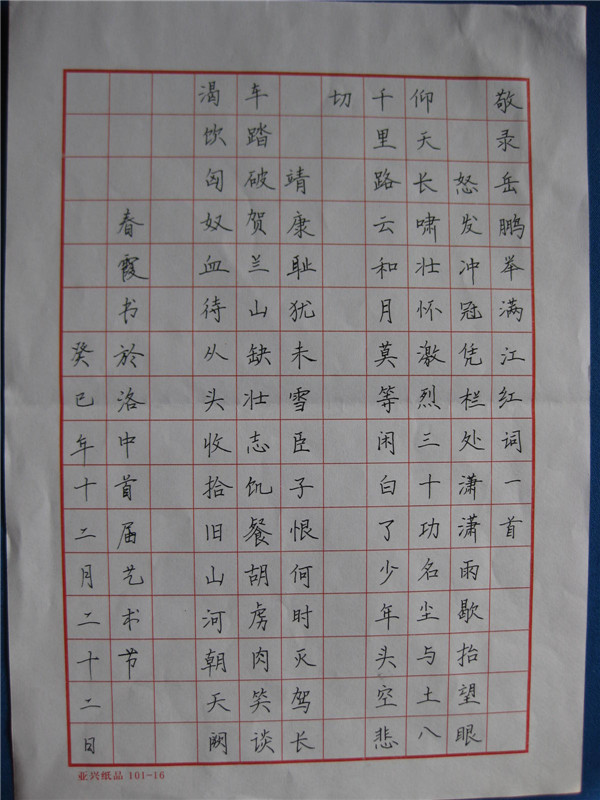 敬录岳鹏举满江红词一首
怒发冲冠凭栏处潇潇雨歇抬望眼
仰天长啸壮怀激烈三十功名尘与土八
千里路云和月莫等闲白了少年头空悲
切
靖康耻犹未雪臣子恨何时灭驾长
车踏破贺兰山缺壮志饥餐胡虏肉笑谈
渴饮匈奴血待从头收拾旧山河朝天阙
春霞书於洛中首届艺术节
癸巳年十二月二十二日
亚兴纸品 101-16